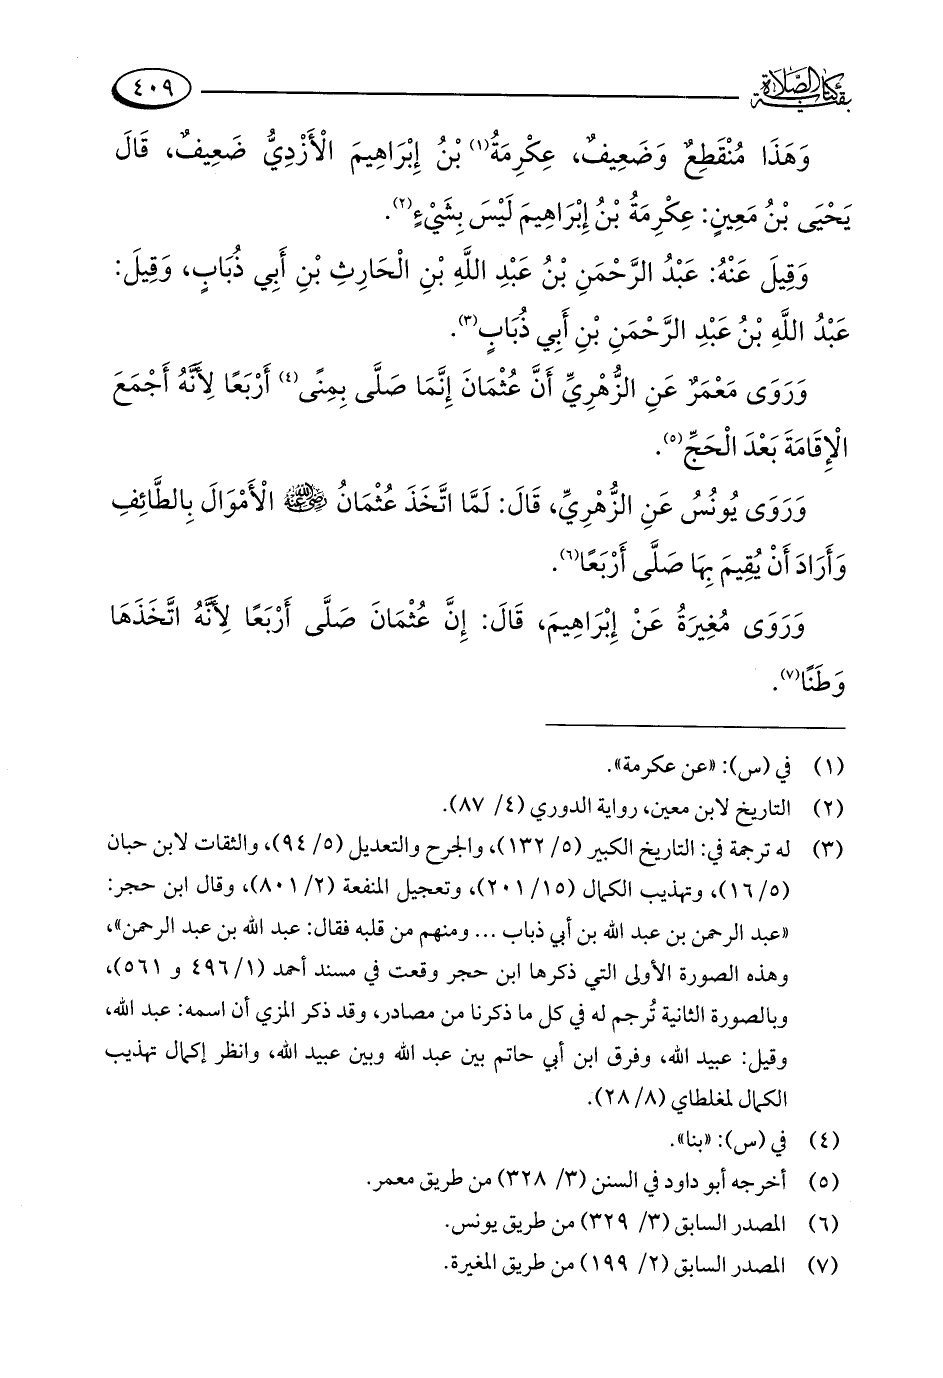 بقية كتاب الصلاة ٤٠٩
وَهَذَا مُنْقَطِعٌ وَضَعِيفٌ، عِكْرِمَةُ(١) بْنُ إِبْرَاهِيمَ الْأَزْدِيُّ ضَعِيفٌ، قَالَ
يَحْيَى بْنُ مَعِينٍ: عِكْرِمَةُ بْنُ إِبْرَاهِيمَ لَيْسَ بِشَيْءٍ(٢).
وَقِيلَ عَنْهُ: عَبْدُ الرَّحْمَنِ بْنُ عَبْدِ اللَّهِ بْنِ الْحَارِثِ بْنِ أَبِي ذُبَابٍ، وَقِيلَ:
عَبْدُ اللَّهِ بْنُ عَبْدِ الرَّحْمَنِ بْنِ أَبِي ذُبَابٍ(٣).
وَرَوَى مَعْمَرٌ عَنِ الزُّهْرِيِّ أَنَّ عُثْمَانَ إِنَّمَا صَلَّى بِمِنًى(٤) أَرْبَعًا لِأَنَّهُ أَجْمَعَ
الْإِقَامَةَ بَعْدَ الْحَجِّ(٥).
وَرَوَى يُونُسُ عَنِ الزُّهْرِيِّ، قَالَ: لَمَّا اتَّخَذَ عُثْمَانُ رضي الله عنه الْأَمْوَالَ بِالطَّائِفِ
وَأَرَادَ أَنْ يُقِيمَ بِهَا صَلَّى أَرْبَعًا(٦).
وَرَوَى مُغِيرَةُ عَنْ إِبْرَاهِيمَ، قَالَ: إِنَّ عُثْمَانَ صَلَّى أَرْبَعًا لِأَنَّهُ اتَّخَذَهَا
وَطَنًا(٧).
(١) في (س): «عن عكرمة».
(٢) التاريخ لابن معين، رواية الدوري (٤/ ٨٧).
(٣) له ترجمة في: التاريخ الكبير (٥/ ١٣٢)، والجرح والتعديل (٥/ ٩٤)، والثقات لابن حبان
(٥/ ١٦)، وتهذيب الكمال (١٥/ ٢٠١)، وتعجيل المنفعة (٢/ ٨٠١)، وقال ابن حجر:
«عبد الرحمن بن عبد الله بن أبي ذباب ... ومنهم من قلبه فقال: عبد الله بن عبد الرحمن»،
وهذه الصورة الأولى التي ذكرها ابن حجر وقعت في مسند أحمد (١/ ٤٩٦ و ٥٦١)،
وبالصورة الثانية تُرجم له في كل ما ذكرنا من مصادر، وقد ذكر المزي أن اسمه: عبد الله،
وقيل: عبيد الله، وفرق ابن أبي حاتم بين عبد الله وبين عبيد الله، وانظر إكمال تهذيب
الكمال لمغلطاي (٨/ ٢٨).
(٤) في (س): «بنا».
(٥) أخرجه أبو داود في السنن (٣/ ٣٢٨) من طريق معمر.
(٦) المصدر السابق (٣/ ٣٢٩) من طريق يونس.
(٧) المصدر السابق (٢/ ١٩٩) من طريق المغيرة.